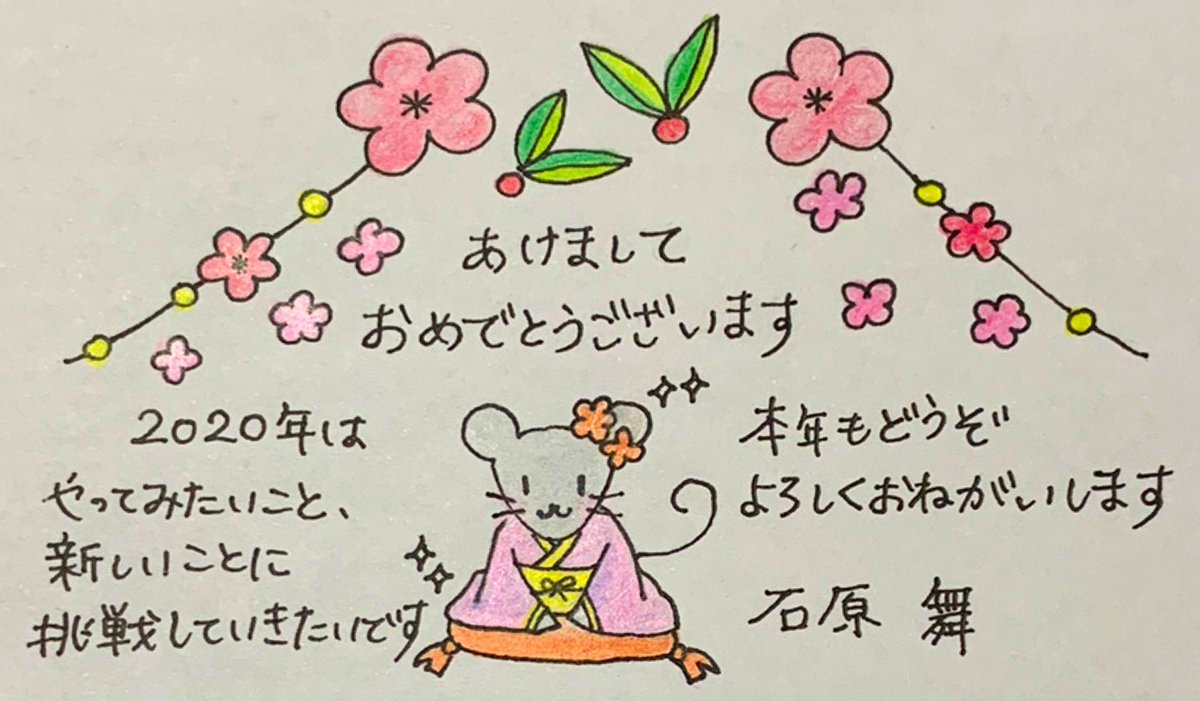 あけまして
おめでとうございます
2020年は
やってみたいこと、
新しいことに
挑戦していきたいです
本年もどうぞ
よろしくおねがいします
石原 舞